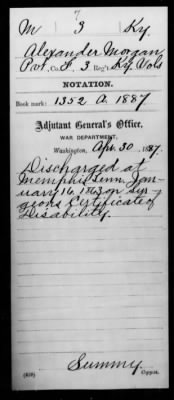 7
M 3 Ky.
Alexander Morgan,
Pvt., Co. F, 3 Reg't Ky. Vols
NOTATION.
Book mark: 1352 A. 1887
Adjutant General's Office,
WAR DEPARTMENT,
Washington, Apr. 30, 1887.
Discharged at
Memphis Tenn. Jan-
uary 16, 1863 on Sur-
geons Certificate of
Disability.
Summy.
(639) Copyist.